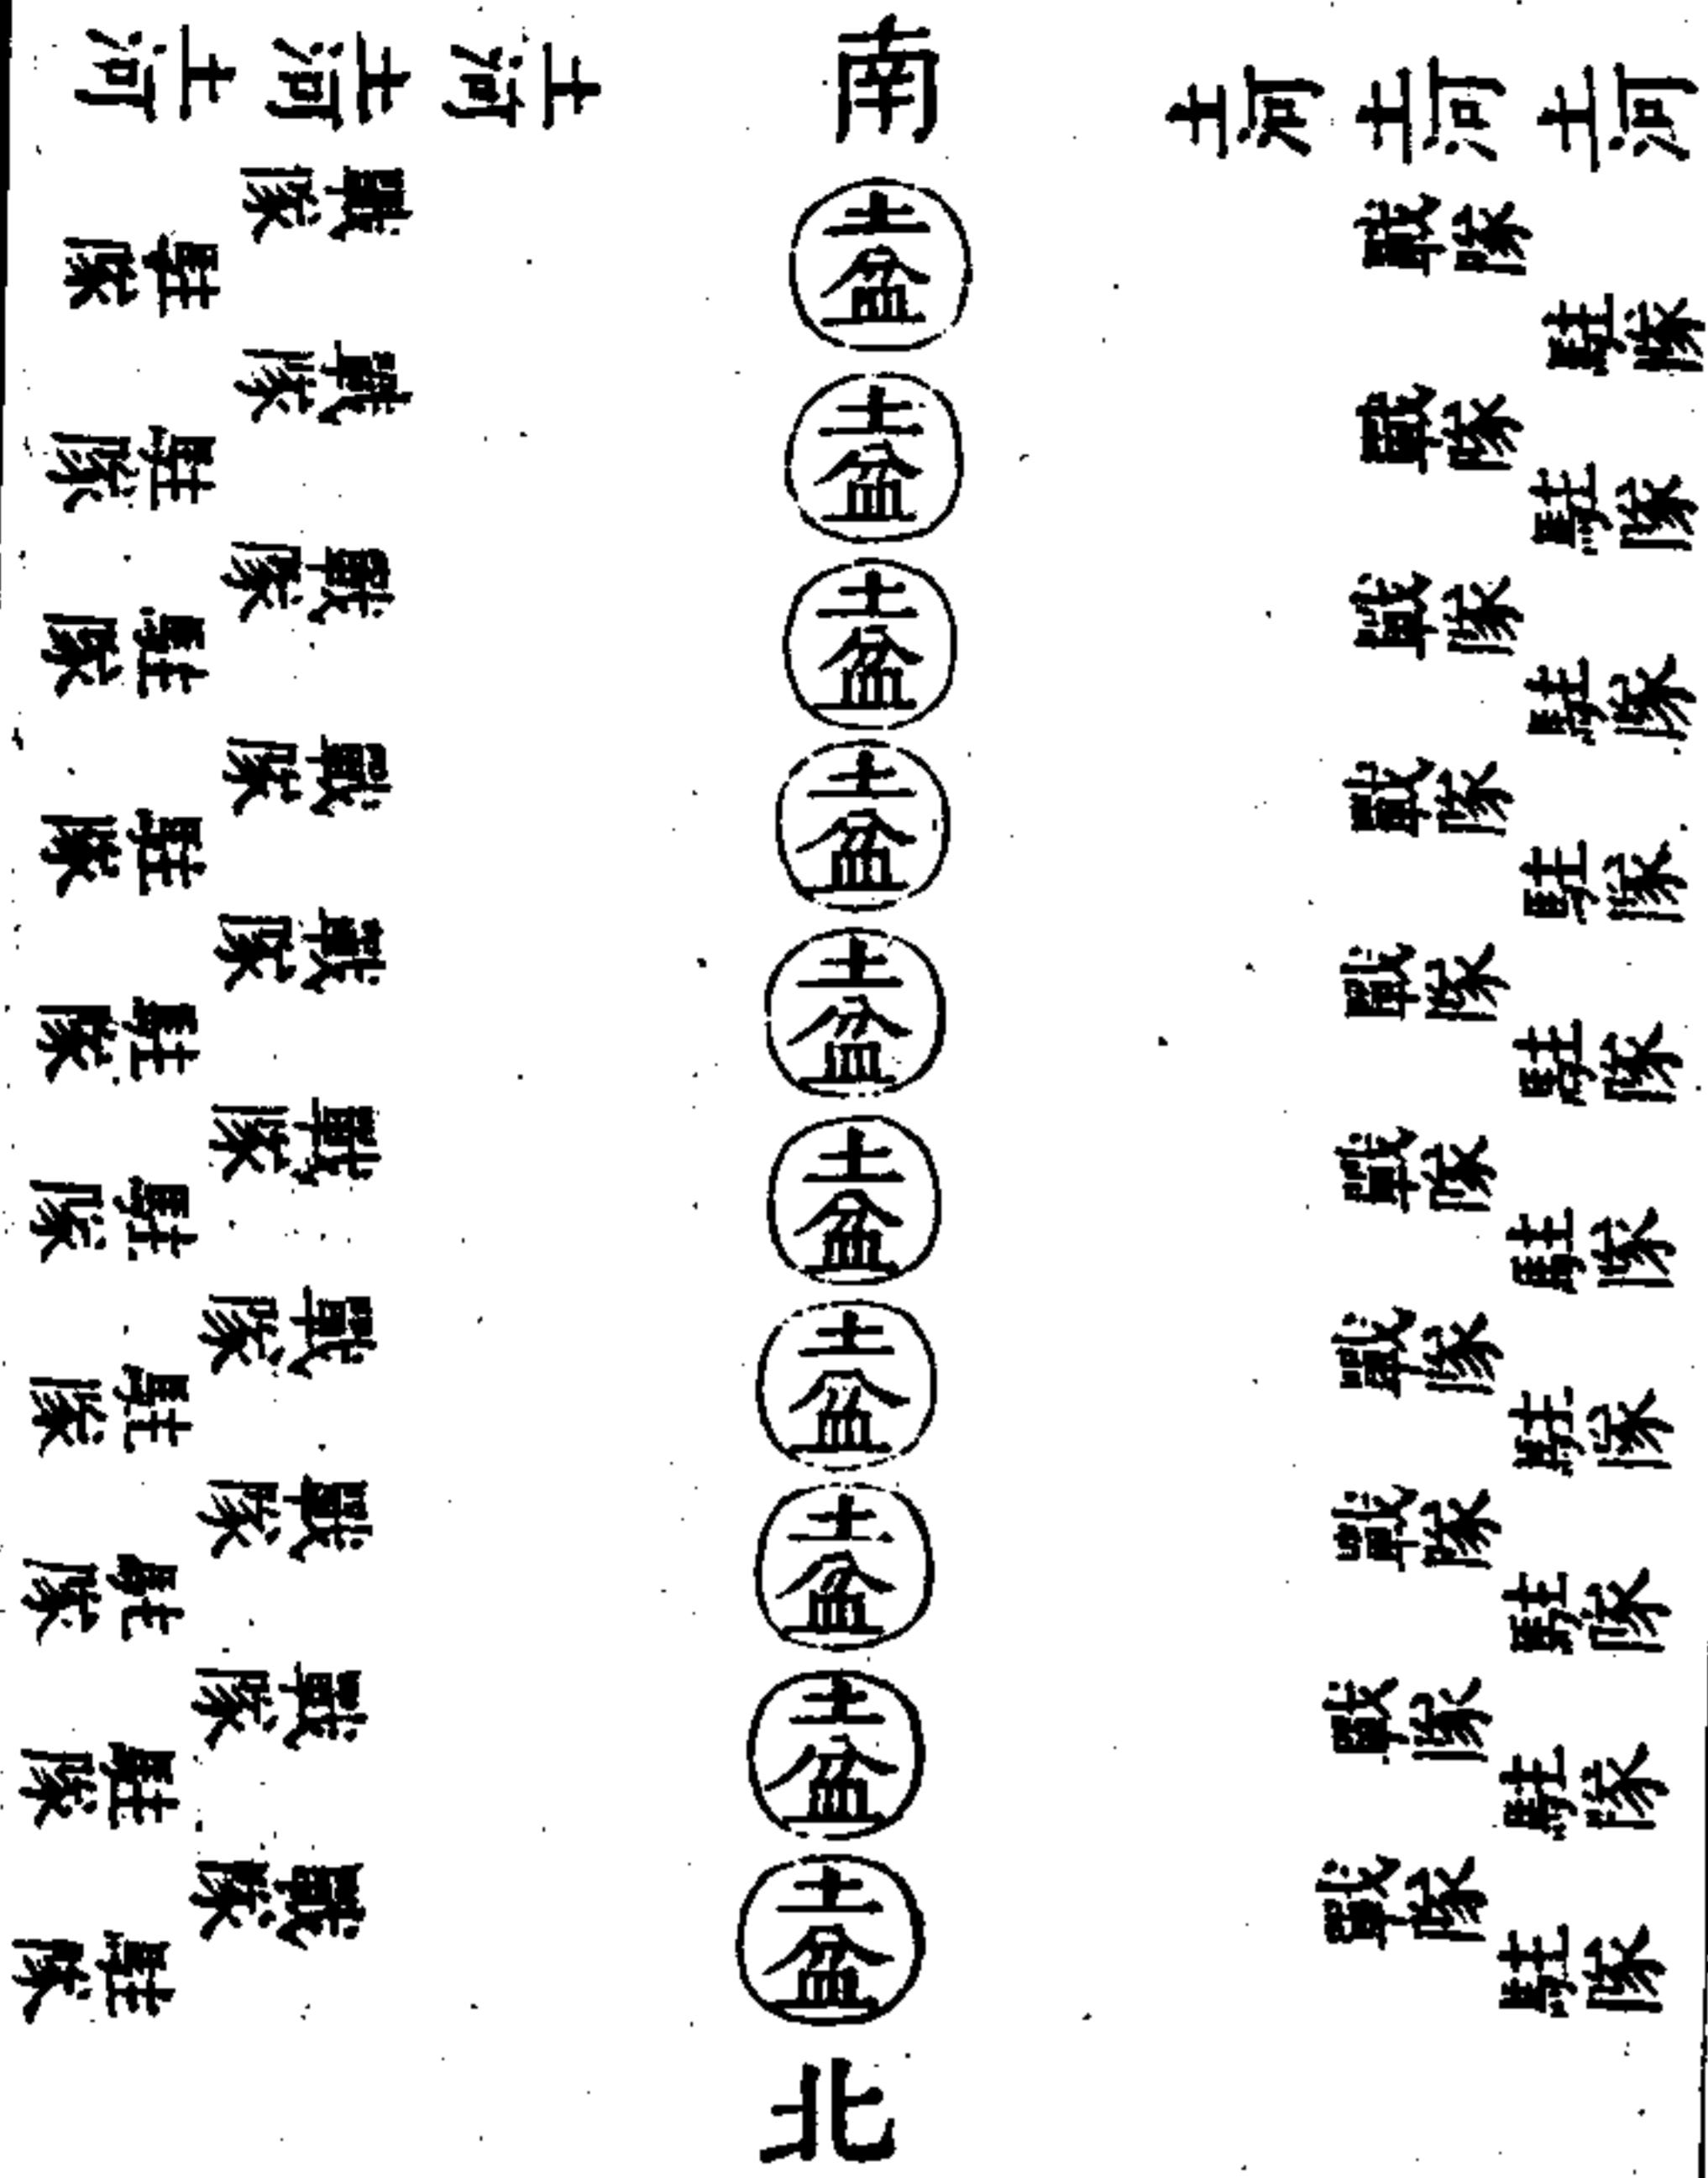 土河
土河
土河
戰隊
駐隊
戰隊
駐隊
戰隊
駐隊
戰隊
駐隊
戰隊
駐隊
戰隊
駐隊
戰隊
駐隊
戰隊
駐隊
戰隊
駐隊
戰隊
駐隊
南
土盆
土盆
土盆
土盆
土盆
土盆
土盆
土盆
土盆
土盆
北
土河
土河
土河
戰隊
駐隊
戰隊
駐隊
戰隊
駐隊
戰隊
駐隊
戰隊
駐隊
戰隊
駐隊
戰隊
駐隊
戰隊
駐隊
戰隊
駐隊
戰隊
駐隊